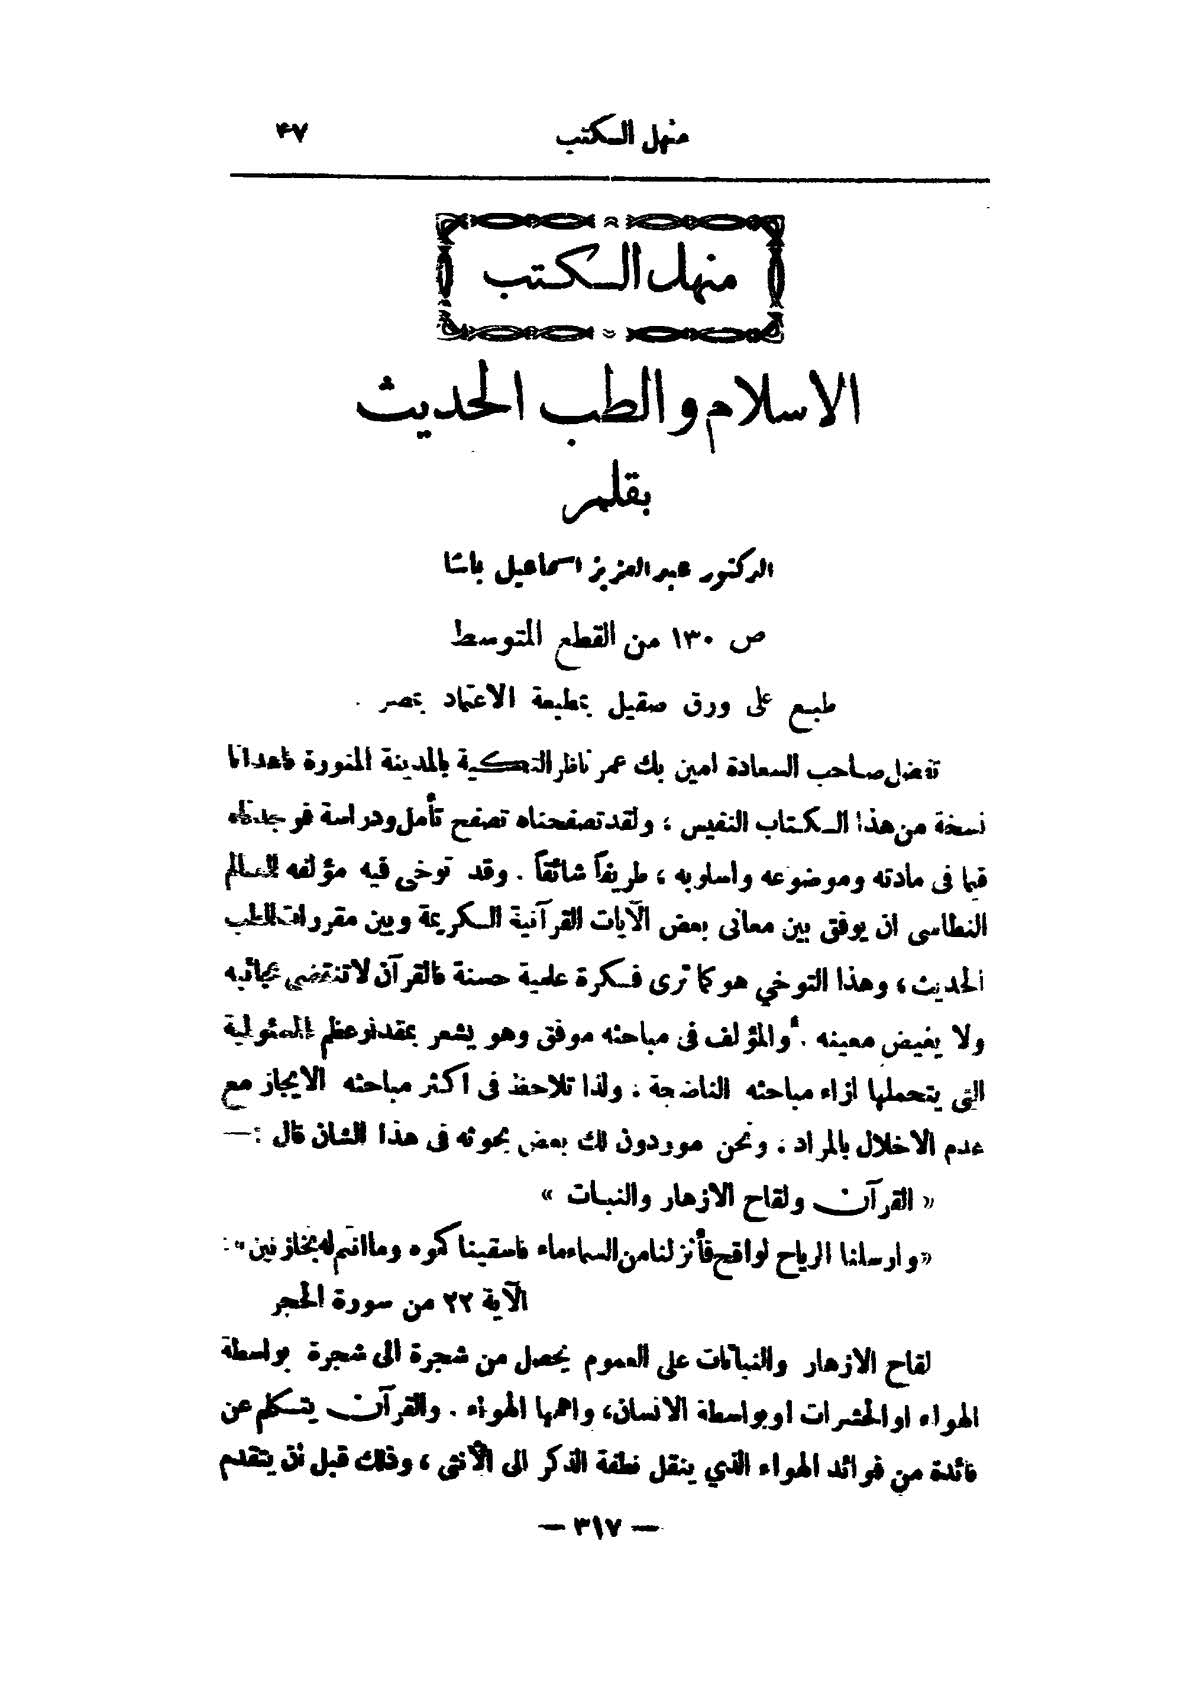 منهل الكتب ٤٧
منهل الكتب
الاسلام والطب الحديث
بقلم
الدكتور عبد العزيز اسماعيل باشا
ص ١٣٠ من القطع المتوسط
طبع على ورق صقيل بمطبعة الاعتماد بمصر .
تفضل صاحب السعادة امين بك عمر ناظر التكية بالمدينة المنورة فاهدانا
نسخة من هذا الكتاب النفيس ؛ ولقد تصفحناه تصفح تأمل ودراسة فوجدناه
قيما في مادته وموضوعه واسلوبه ، طريفاً شائقاً . وقد توخى فيه مؤلفه العالم
النطاسى ان يوفق بين معانى بعض الآيات القرآنية الكريمة وبين مقررات الطب
الحديث ، وهذا التوخي هو كما ترى فكرة علمية حسنة فالقرآن لا تنقضي عجائبه
ولا يغيض معينه . والمؤلف فى مباحثه موفق وهو يشعر بمقدار عظم المسئولية
التى يتحملها ازاء مباحثه الناضجة . ولذا تلاحظ فى اكثر مباحثه الايجاز مع
عدم الاخلال بالمراد . ونحن موردون لك بعض بحوثه فى هذا الشان قال :—
« القرآن ولقاح الازهار والنبات »
« وارسلنا الرياح لواقح فأنزلنا من السماء ماء فاسقيناكموه وما انتم له بخازنين » :
الآية ٢٢ من سورة الحجر
لقاح الازهار والنباتات على العموم يحصل من شجرة الى شجرة بواسطة
الهواء او الحشرات او بواسطة الانسان، واهمها الهواء . والقرآن يتكلم عن
فائدة من فوائد الهواء الذي ينقل نطفة الذكر الى الأنثى ، وذلك قبل ان يتقدم
— ٣١٧ —